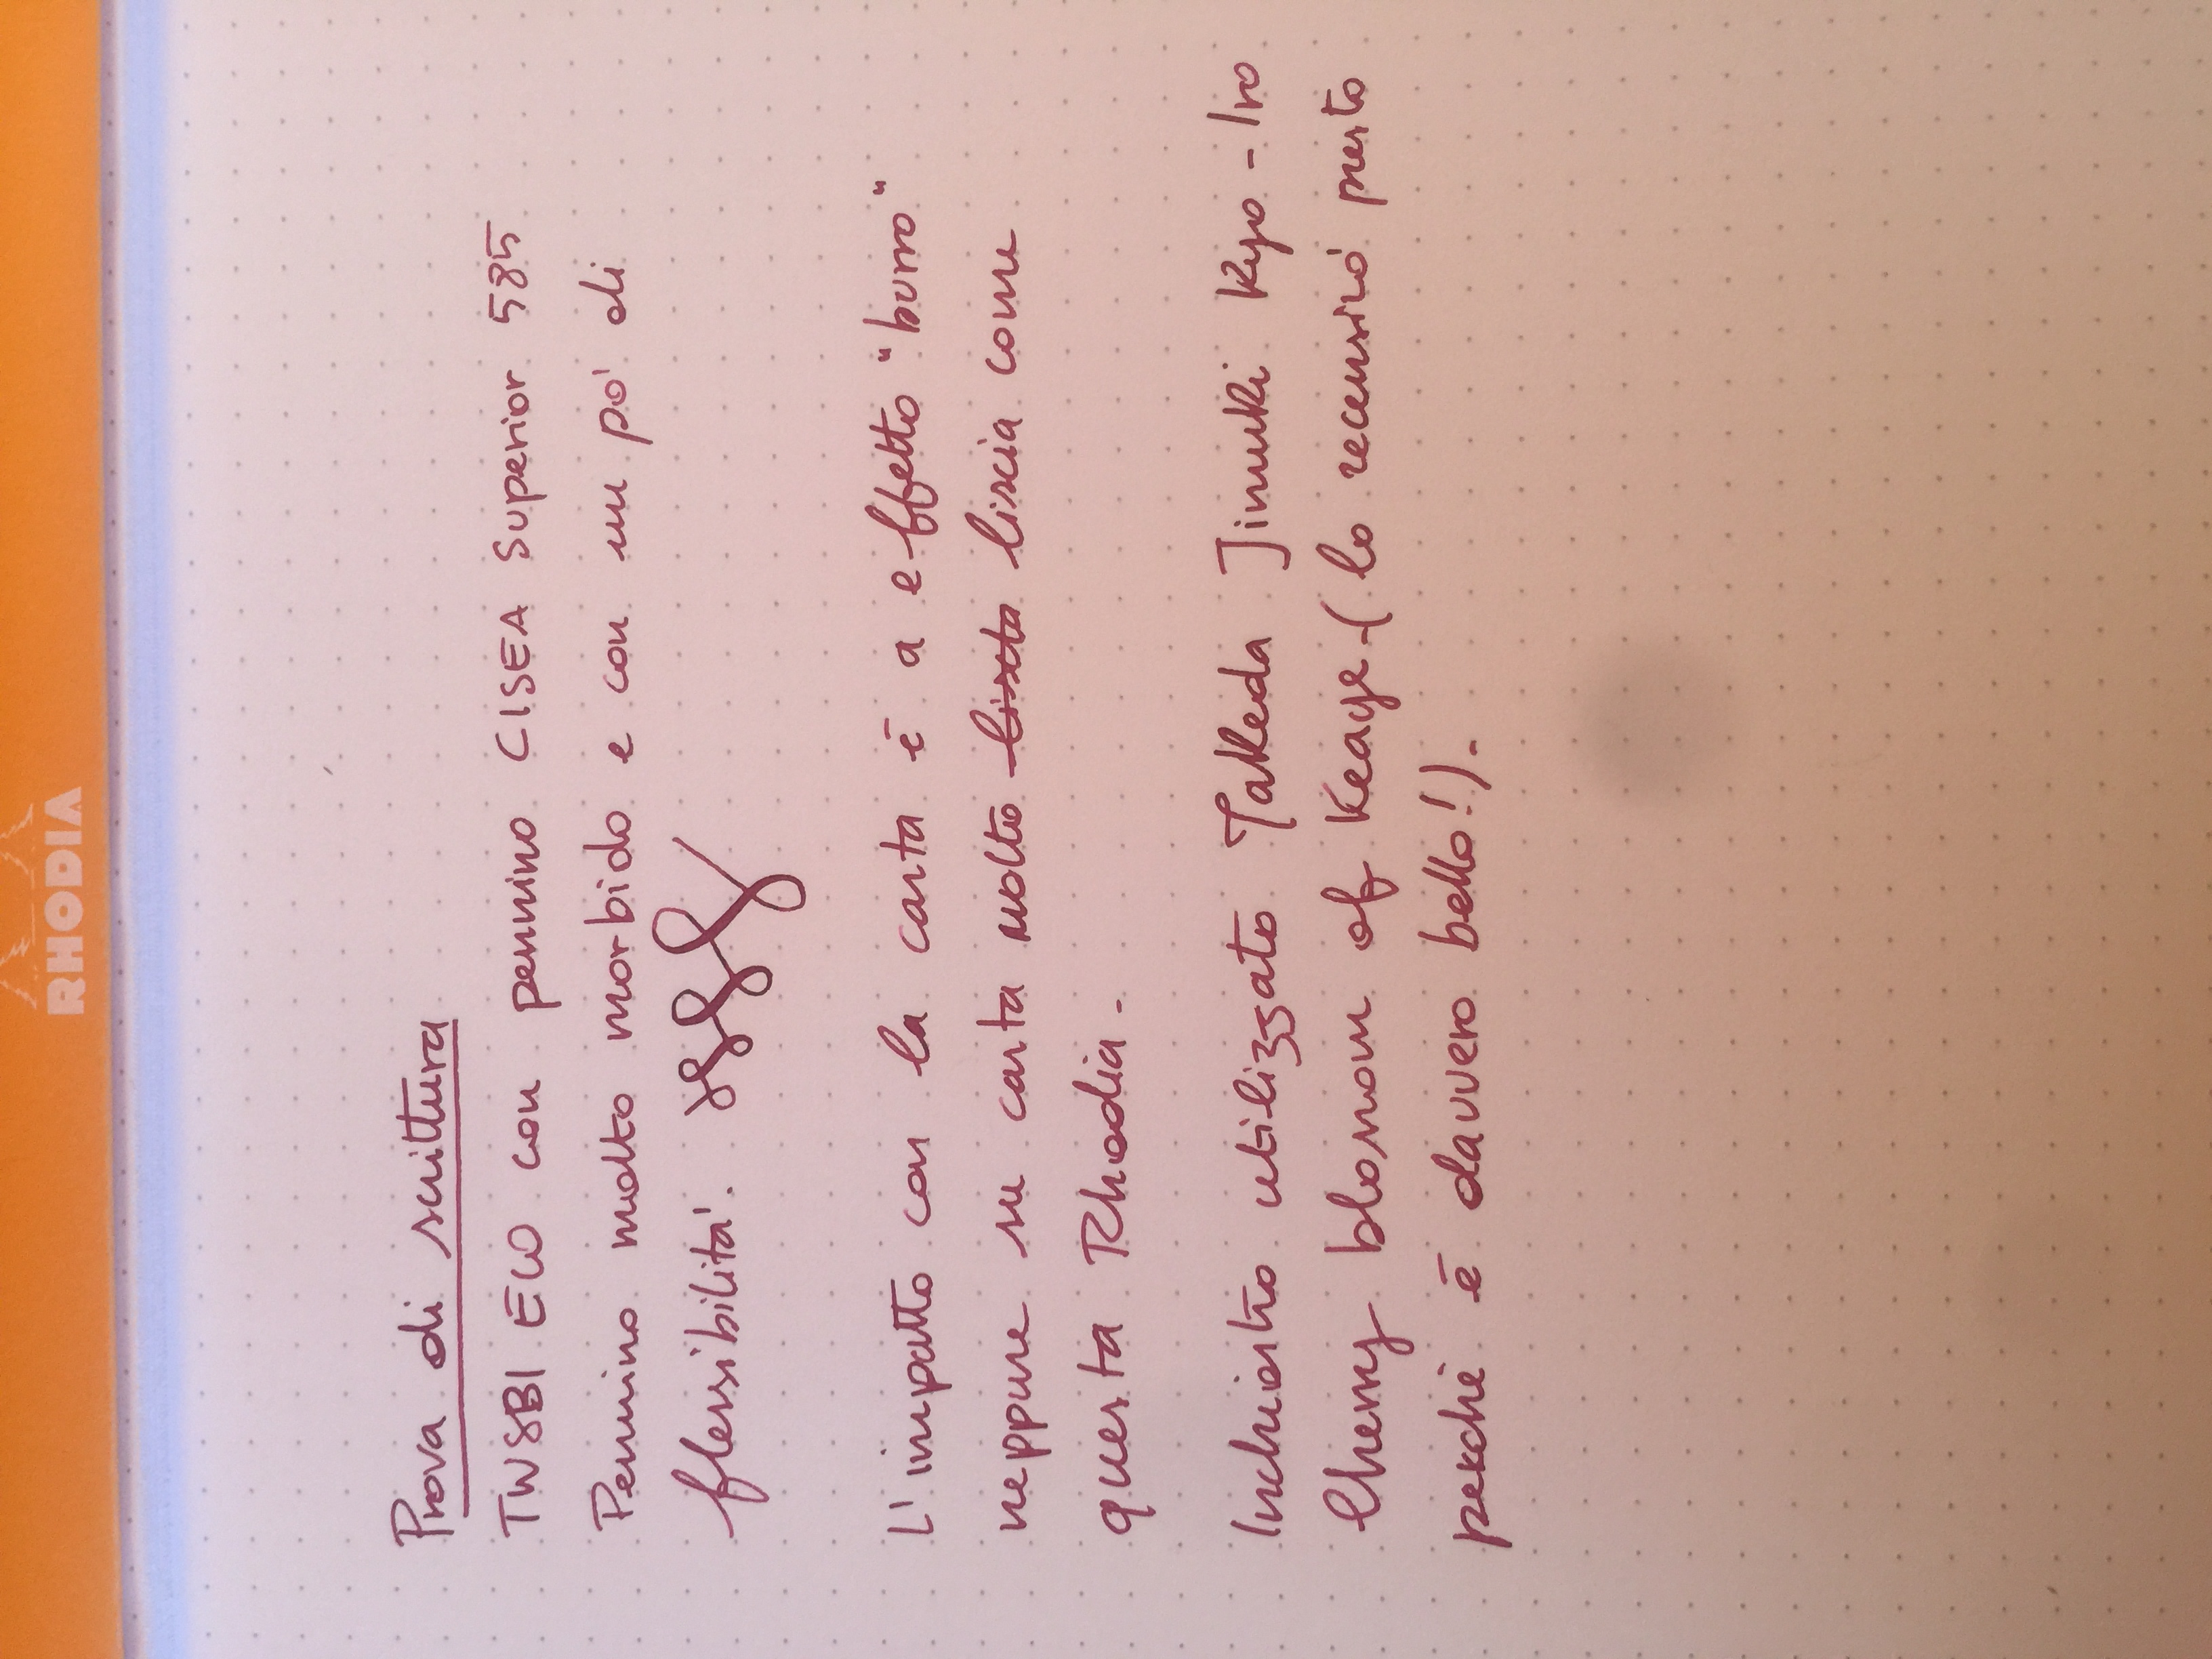 RHODIA
Prova di scrittura
TWSBI ECO con pennino CISEA Superior 585
Pennino molto morbido e con un po' di
flessibilita'.
L'impatto con la carta è a effetto "burro"
neppure su carta molto liscia come
questa Rhodia.
Inchiostro utilizzato Takeda Jimuki Kyo-Iro
Cherry blossom of Keage (lo recensirò presto
perchè è davvero bello!).